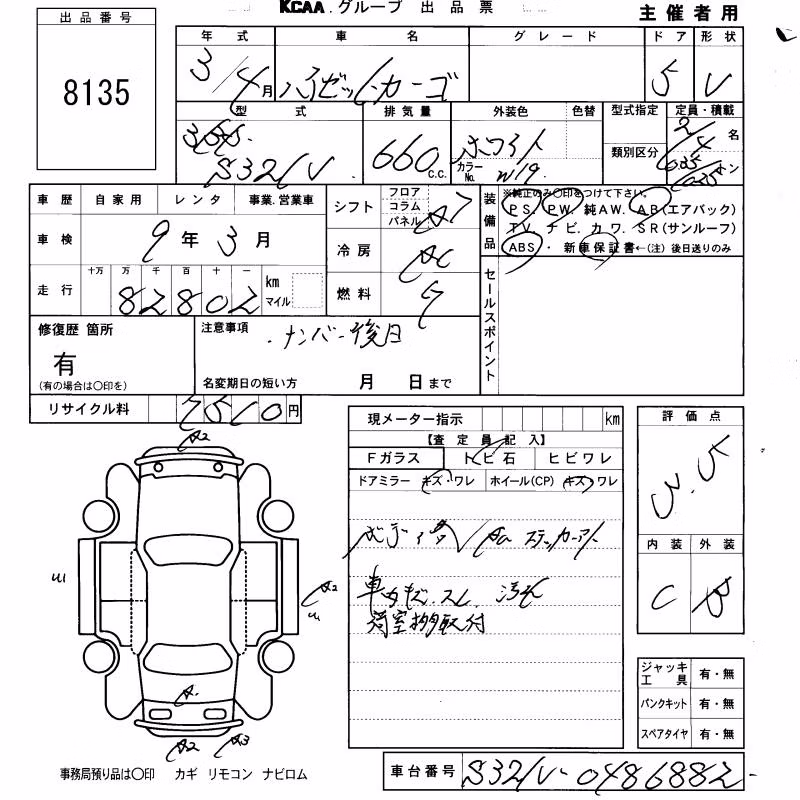 KCAA.グループ 出品票
主催者用
出品番号
8135
年式 車名 グレード ドア 形状
3/4月 ハイゼットカーゴ 5 V
型式 排気量 外装色 色替 型式指定 定員・積載
3BD- S321V 660c.c. ホワイト カラーNo. W19 類別区分 2/4名
車歴 自家用 レンタ 事業.営業車
車検 9年3月
走行 十万 万 千 百 十 一
82802 km マイル
シフト フロア コラム パネル A7
冷房 AC
燃料 G
装備品 ※純正のみ〇印をつけて下さい。
PS. PW. 純AW. AB(エアバック)
TV. ナビ. カワ. SR(サンルーフ)
ABS・新車保証書←(注)後日送りのみ
セールスポイント
修復歴 箇所
有
(有の場合は〇印を)
注意事項
・ナンバー後日
名変期日の短い方 月 日まで
リサイクル料 7510円
現メーター指示 km
【査定員記入】
Fガラス トビ石 ヒビワレ
ドアミラー キズ・ワレ ホイール(CP) キズ・ワレ
車内キズ、スレ、汚れ
荷室棚取付
評価点
3.5
内装 外装
C B
A2
A2
A2
A3
ジャッキ工具 有・無
パンクキット 有・無
スペアタイヤ 有・無
事務局預り品は〇印 カギ リモコン ナビロム
車台番号 S321V-0486882